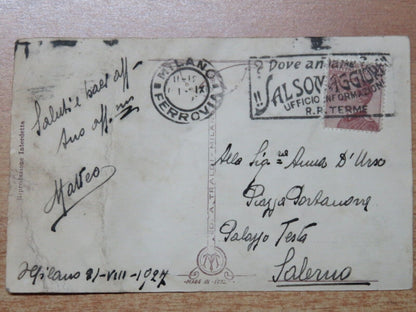 Saluti e baci aff.
Suo aff.mo
Matteo
Milano 31-VIII-1927
Riproduzione Interdetta
MILANO
FERROVIA
? Dove andare
!! SALSOMAGGIORE
UFFICIO INFORMAZIONI
R.R. TERME
Alla Sig.na Anna D'Urso
Piazza Portanova
Palazzo Testa
Salerno
MADE IN ITALY